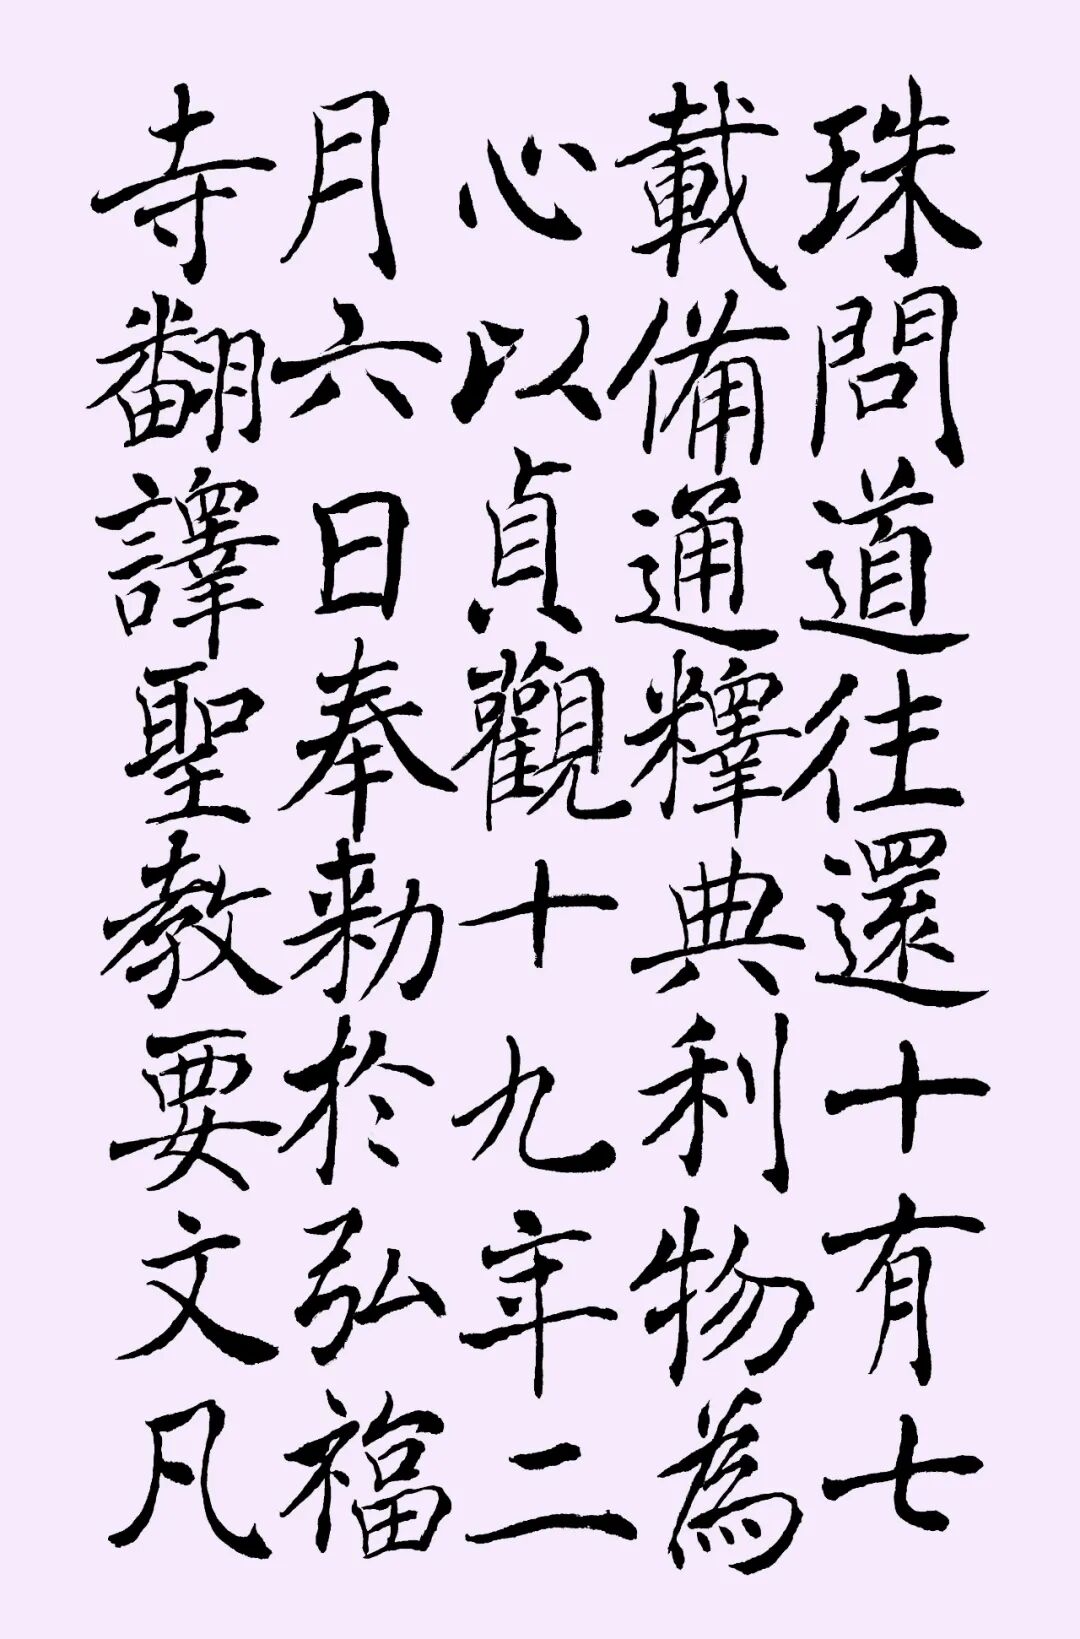 珠問道往還十有七
載備通釋典利物為
心以貞觀十九年二
月六日奉勑於弘福
寺翻譯聖教要文凡